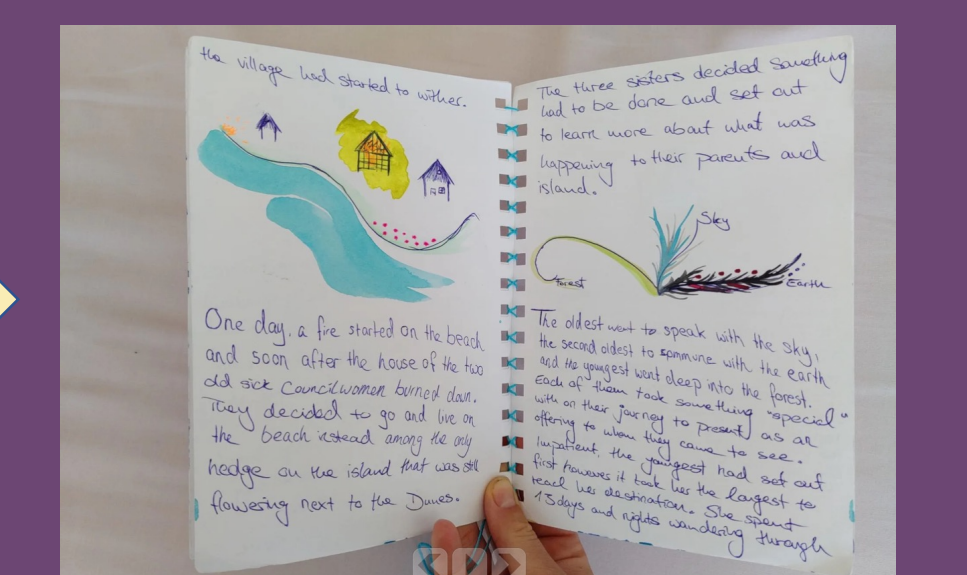 the village had started to wither.
One day, a fire started on the beach
and soon after the house of the two
old sick Councilwomen burned down.
They decided to go and live on
the beach instead among the only
hedge on the island that was still
flowering next to the Dunes.
The three sisters decided something
had to be done and set out
to learn more about what was
happening to their parents and
island.
Sky
Forest
Earth
The oldest went to speak with the sky,
the second oldest to commune with the earth
and the youngest went deep into the forest.
Each of them took something "special"
with on their journey to present as an
offering to whom they came to see.
Impatient, the youngest had set out
first however it took her the longest to
reach her destination. She spent
13 days and nights wandering through